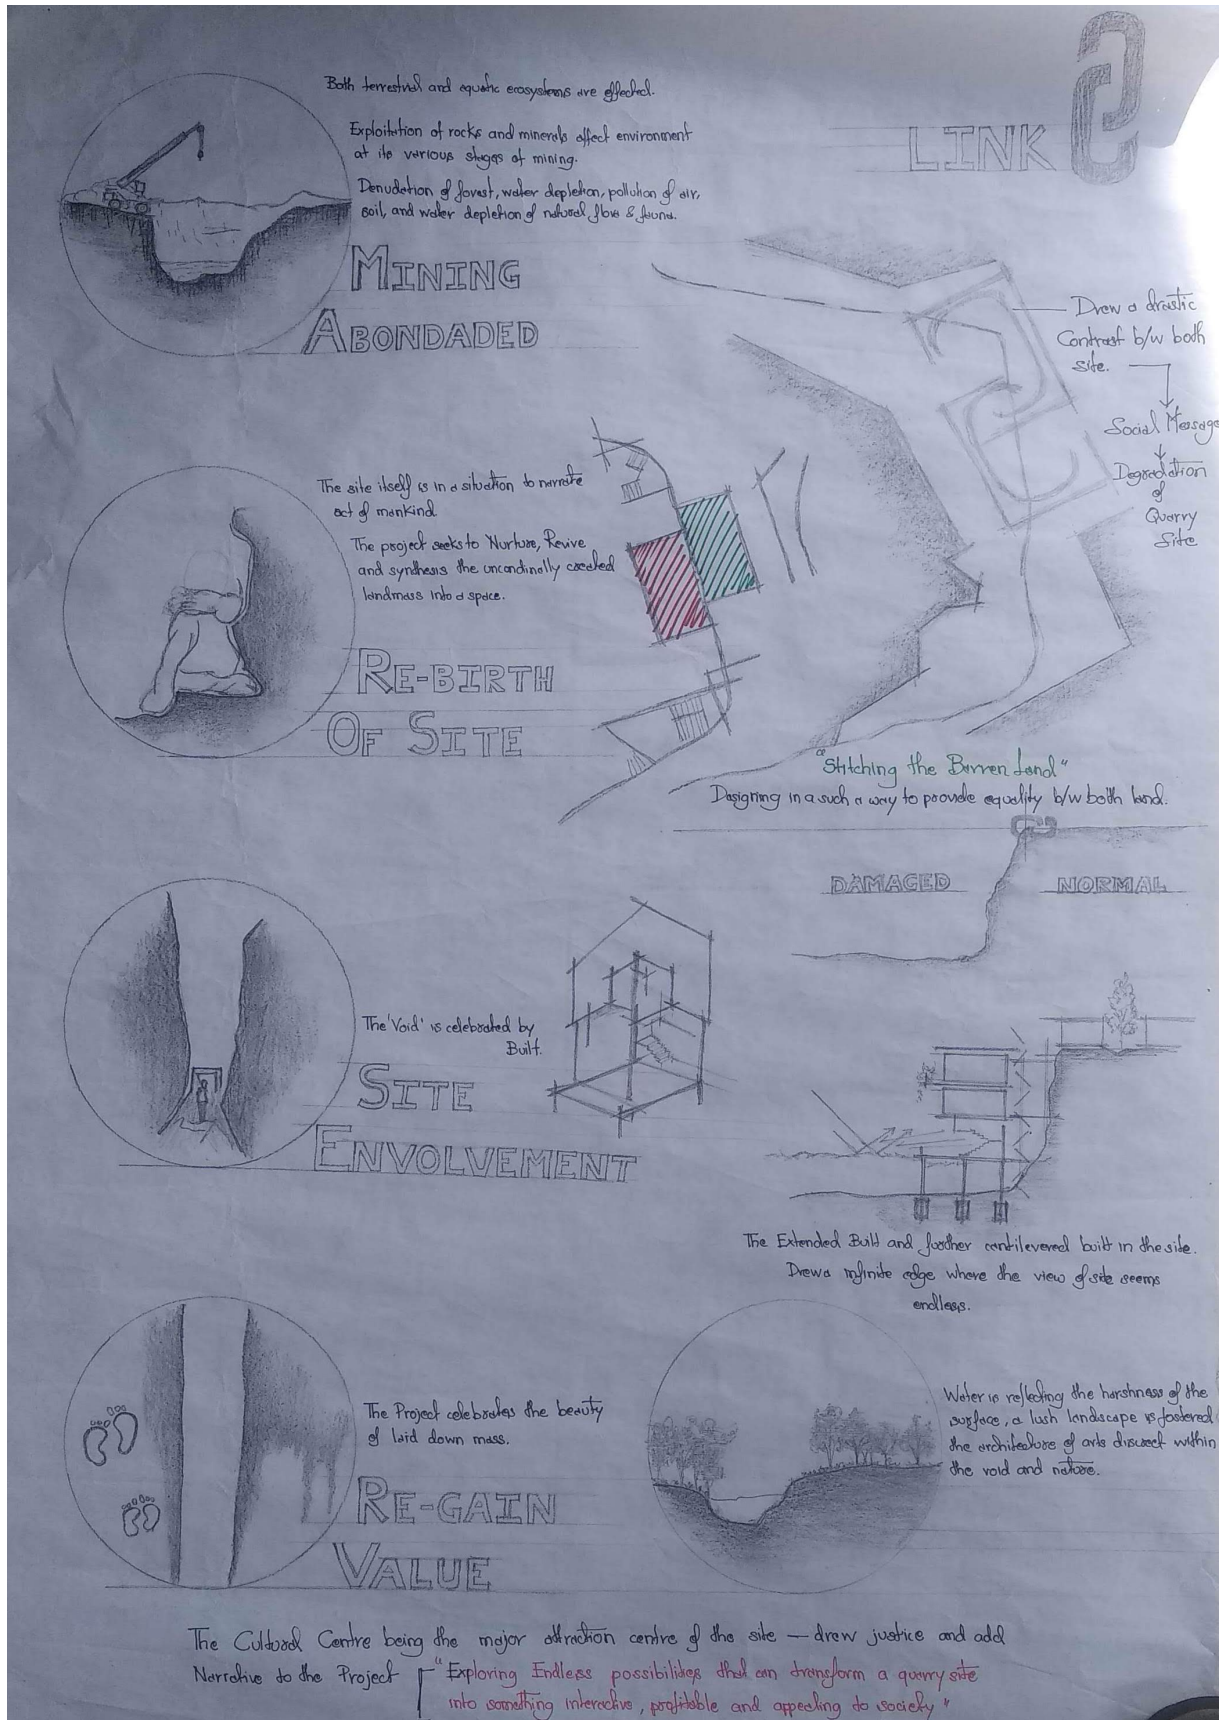 Both terrestrial and equatic ecosystems are effected.
Exploitation of rocks and minerals affect environment
at its various stages of mining.
Denudation of forest, water depletion, pollution of air,
soil, and water depletion of natural flow & fauna.
MINING
ABONDADED
LINK
Drew a drastic
Contrast b/w both
site.
Social Message
Degradation
of
Quarry
Site
The site itself is in a situation to narrate
act of mankind
The project seeks to Nurture, Revive
and synthesis the uncandinally created
landmass into a space.
RE-BIRTH
OF SITE
"Stitching the Barren Land"
Dasigning in a such a way to provide equality b/w both land.
DAMAGED
NORMAL
The 'Void' is celebrated by
Built.
SITE
ENVOLVEMENT
The Extended Built and further cantilevered built in the site.
Drew a infinite edge where the view of site seems
endless.
The Project celebrates the beauty
of laid down mass.
RE-GAIN
VALUE
Water is reflecting the harshness of the
surface, a lush landscape is fostered
the architecture of arts discreet within
the void and nature.
The Cultural Centre being the major attraction centre of the site — drew justice and add
Narrative to the Project "Exploring Endless possibilities that can transform a quarry site
into something interactive, profitable and appealing to society"